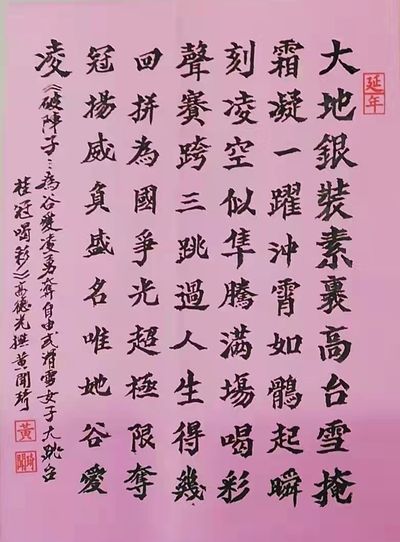 延年
大地銀裝素裹高台雪掩
霜凝一躍沖霄如鶻起瞬
刻凌空似隼騰滿場喝彩
聲賽跨三跳過人生得幾
回拼為國爭光超極限奪
冠揚威負盛名唯她谷愛
凌
《破陣子：為谷愛凌勇奪自由式滑雪女子大跳台
桂冠喝彩》高德光撰黃聞琦
黃